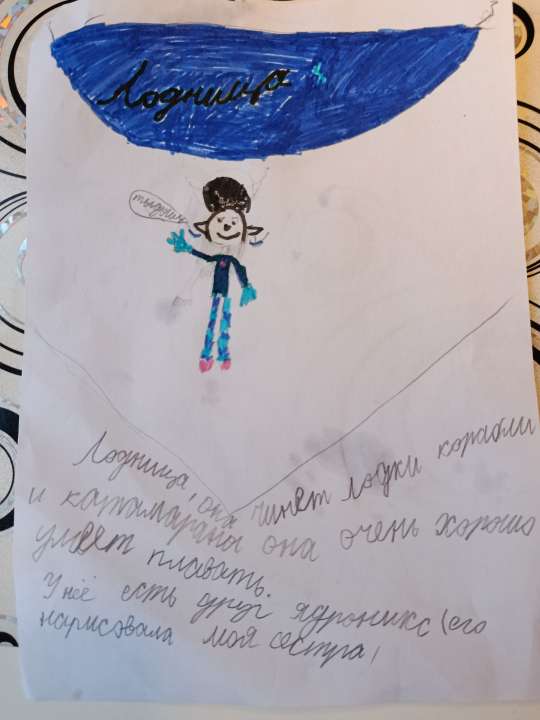 Лодница
тыдыщь
Лодница, она чинет лодки корабли
и катамараны она очень хорошо
умеет плавать.
У неё есть друг ядроникс (его
нарисовала моя сестра)